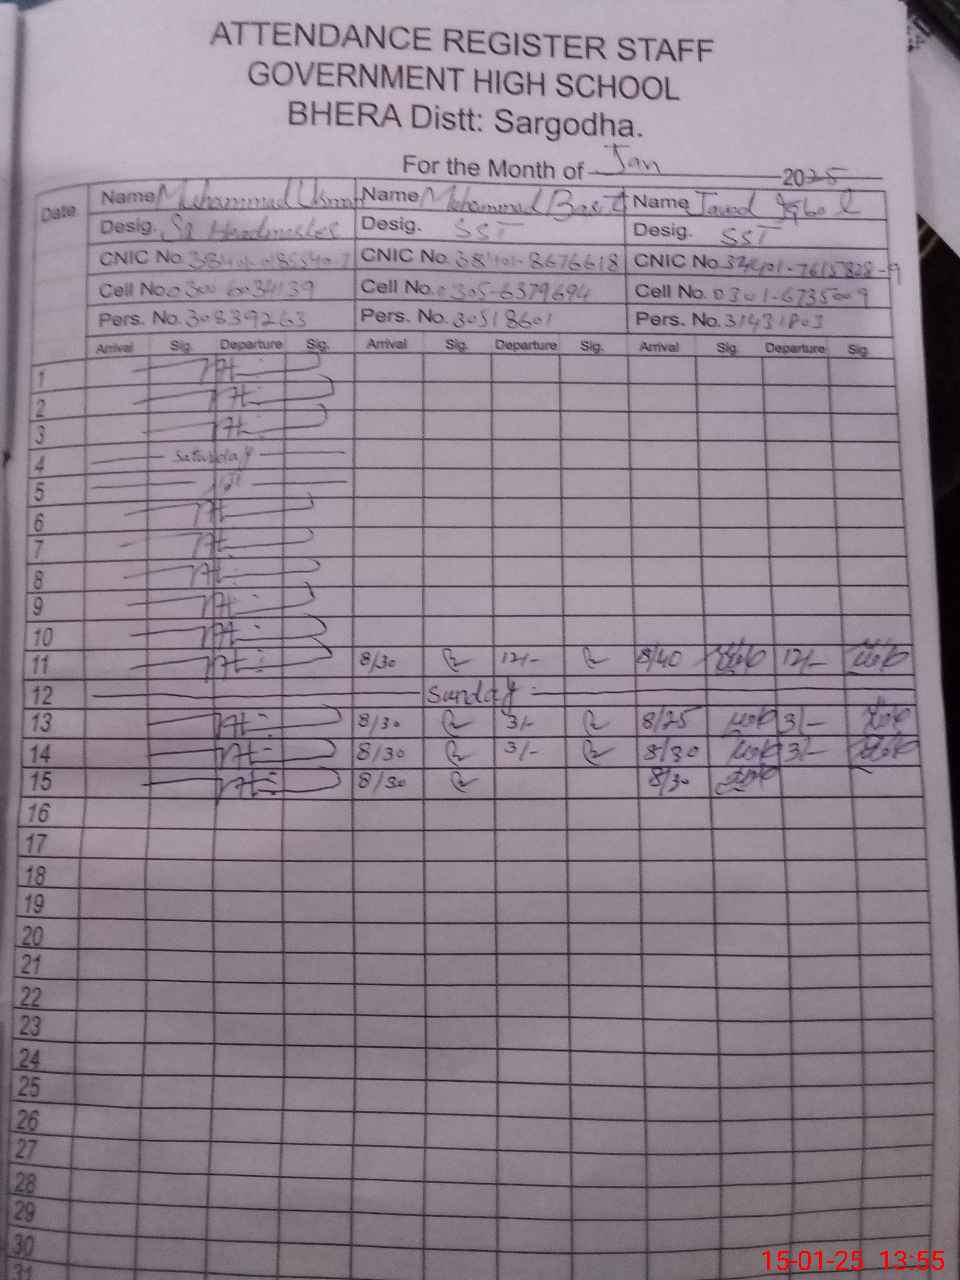 ATTENDANCE REGISTER STAFF
GOVERNMENT HIGH SCHOOL
BHERA Distt: Sargodha.
For the Month of Jan 2025
Date Name Muhammad Usman Name Mohammad Basit Name Javed Iqbal
Desig. Sr Headmaster Desig. SST Desig. SST
CNIC No. CNIC No. 38401-8676618 CNIC No.
Cell No. Cell No. 0305-6379694 Cell No. 0301-6735009
Pers. No. 30839263 Pers. No. 30518601 Pers. No. 31431803
Arrival Sig. Departure Sig. Arrival Sig. Departure Sig. Arrival Sig. Departure Sig.
1
2
3
4 Saturday
5
6
7
8
9
10
11 8/30 12/- 8/40 12/-
12 Sunday
13 8/30 3/- 8/25 3/-
14 8/30 3/- 8/30 3/-
15 8/30 8/30
16
17
18
19
20
21
22
23
24
25
26
27
28
29
30
31
15-01-25 13:55